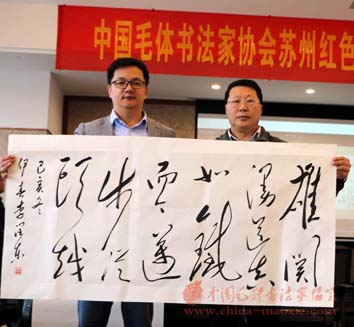 中国毛体书法家协会苏州红色
雄关
漫道真
如鐵
而今邁
步從
頭越
己亥冬
中国毛体书法家协会
www.china-maoxie.com